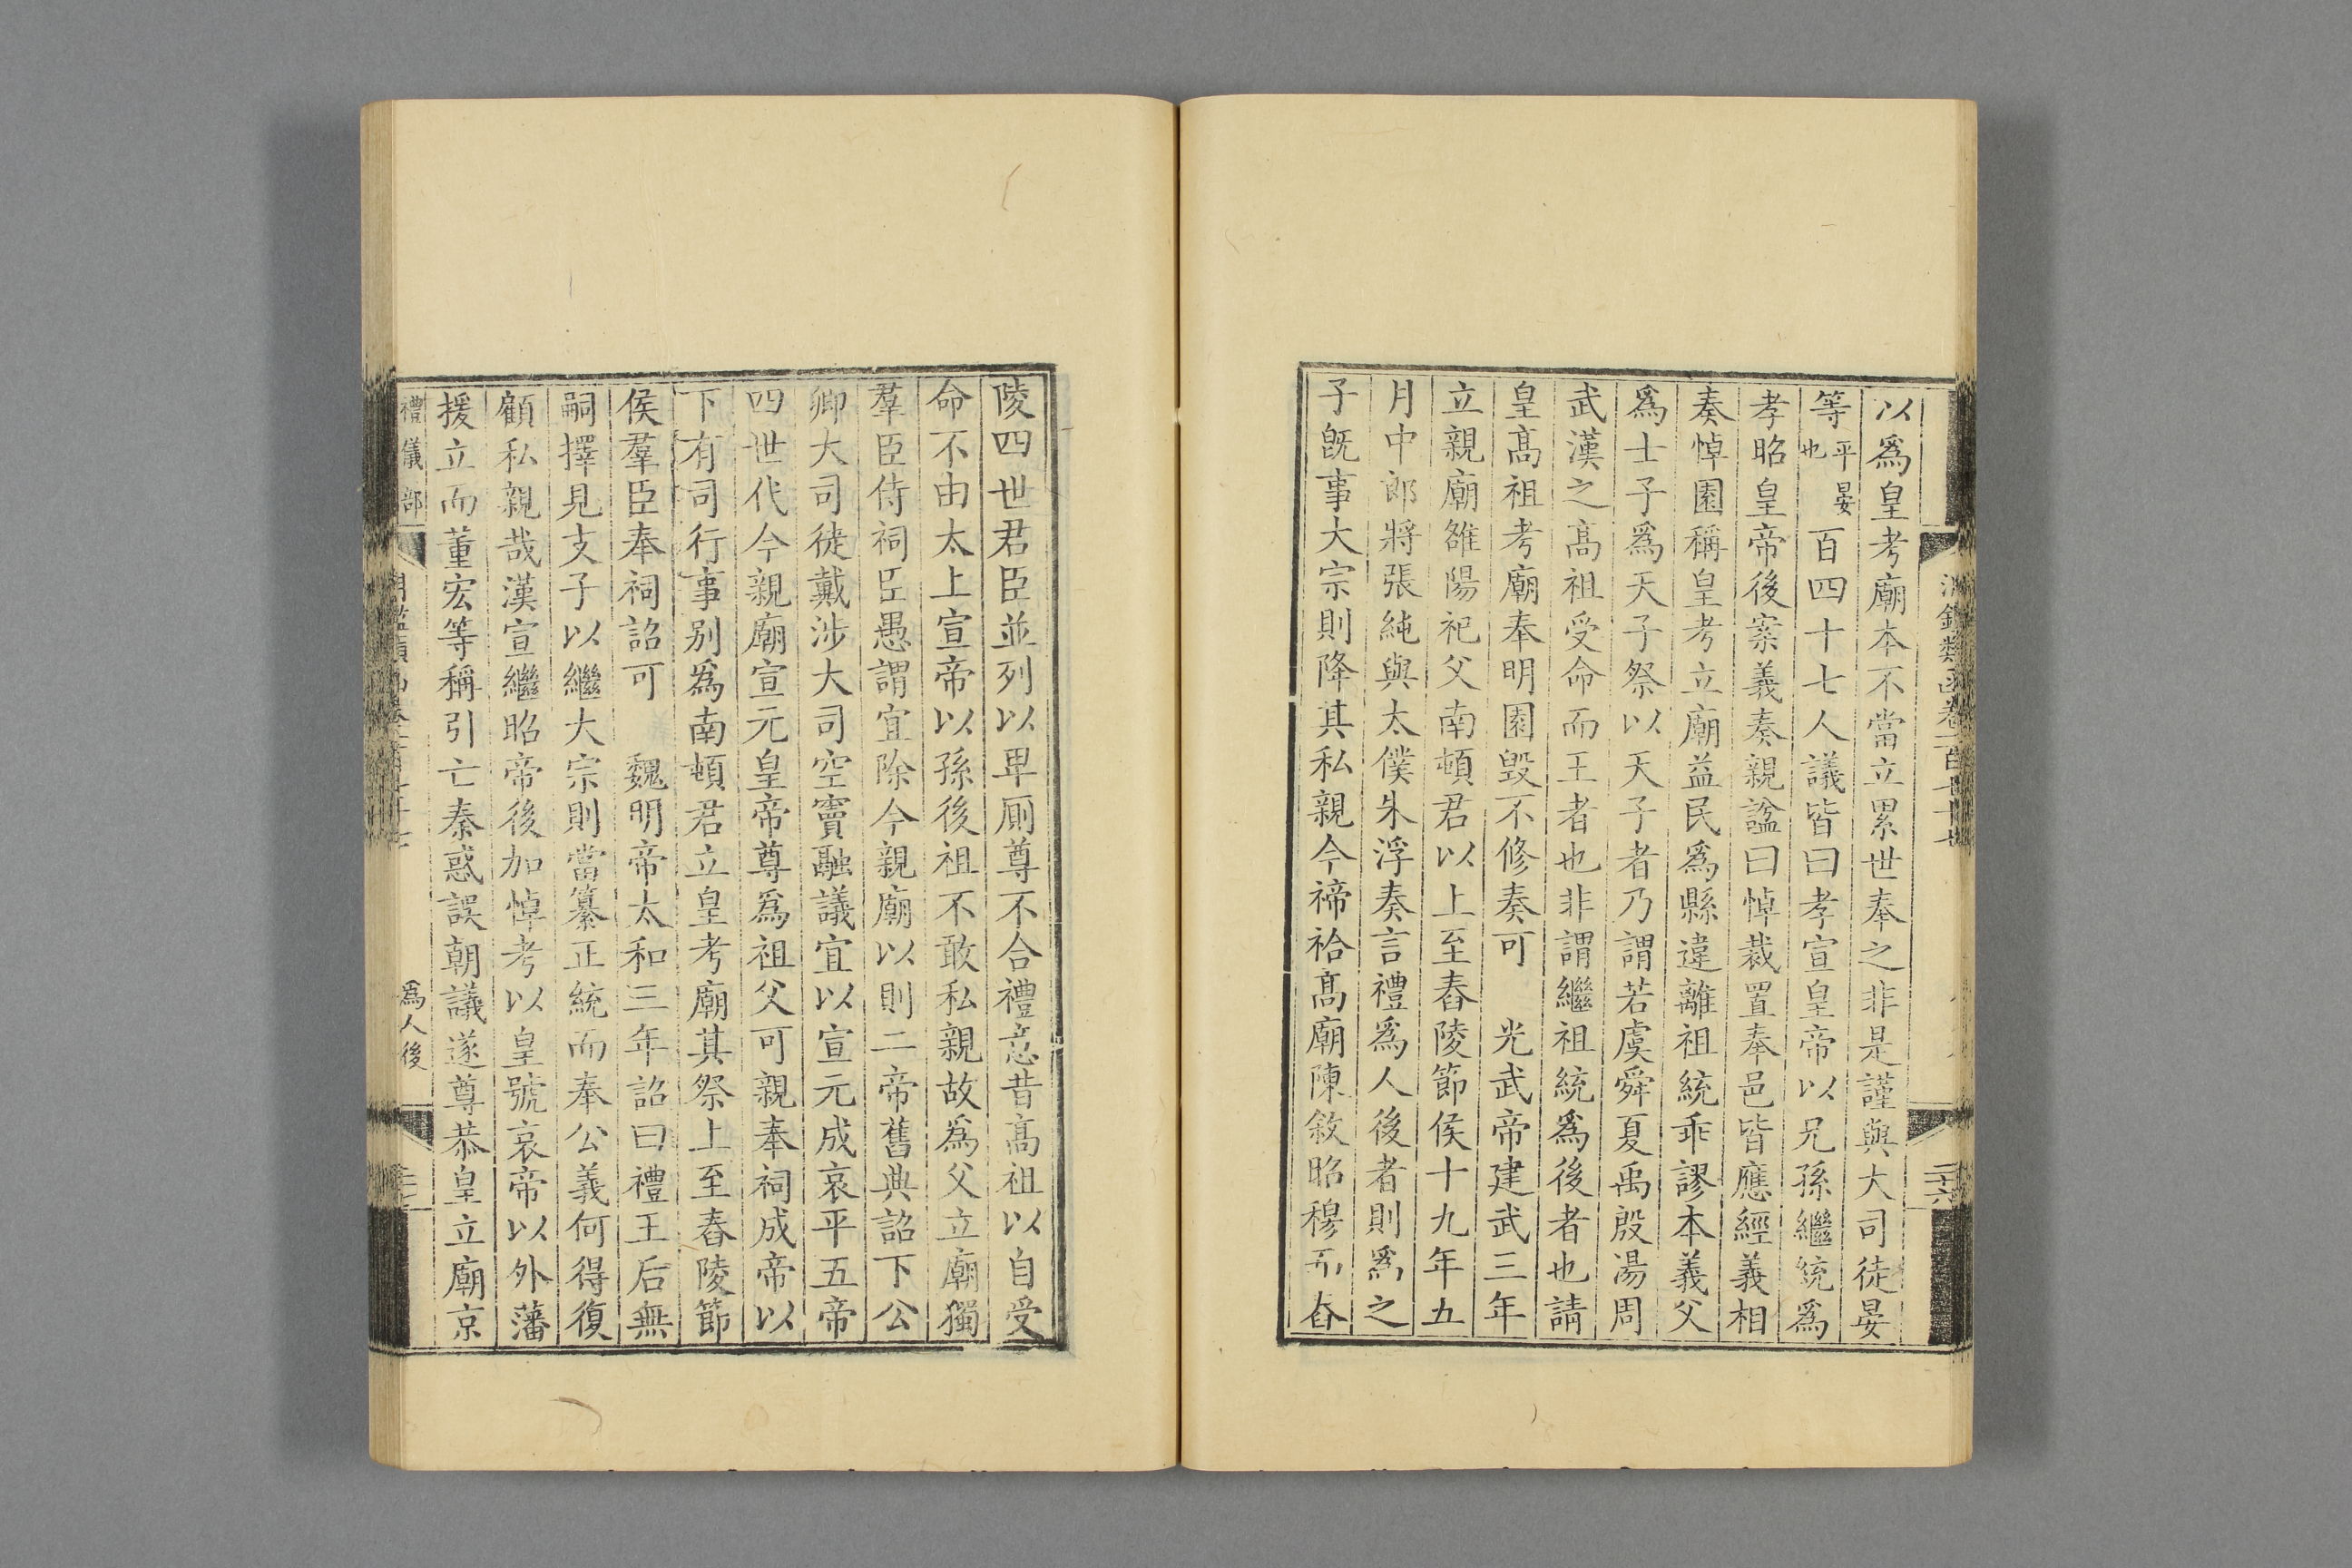 以爲皇考廟本不當立累世奉之非是謹與大司徒晏
等平晏也百四十七人議皆曰孝宣皇帝以兄孫繼統爲
孝昭皇帝後案義奏親諡曰悼裁置奉邑皆應經義相
奏悼園稱皇考立廟益民爲縣違離祖統乖謬本義父
爲士子爲天子祭以天子者乃謂若虞舜夏禹殷湯周
武漢之高祖受命而王者也非謂繼祖統爲後者也請
皇高祖考廟奉明園毀不修奏可　光武帝建武三年
立親廟雒陽祀父南頓君以上至舂陵節侯十九年五
月中郎將張純與太僕朱浮奏言禮爲人後者則爲之
子旣事大宗則降其私親今禘祫高廟陳敘昭穆而舂
二十六
陵四世君臣並列以卑厠尊不合禮意昔高祖以自受
命不由太上宣帝以孫後祖不敢私親故爲父立廟獨
羣臣侍祠臣愚謂宜除今親廟以則二帝舊典詔下公
卿大司徒戴涉大司空竇融議宜以宣元成哀平五帝
四世代今親廟宣元皇帝尊爲祖父可親奉祠成帝以
下有司行事别爲南頓君立皇考廟其祭上至舂陵節
侯羣臣奉祠詔可　魏明帝太和三年詔曰禮王后無
嗣擇見支子以繼大宗則當纂正統而奉公義何得復
顧私親哉漢宣繼昭帝後加悼考以皇號哀帝以外藩
援立而董宏等稱引亡秦惑誤朝議遂尊恭皇立廟京
禮儀部
爲人後